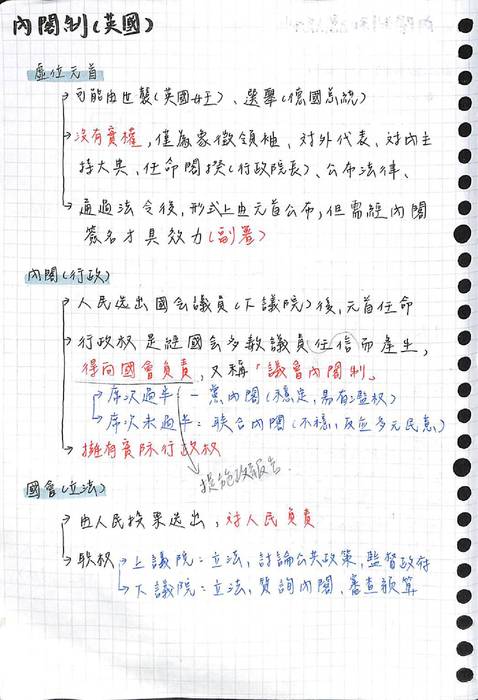 內閣制(英國)
虛位元首
→可能由世襲(英國女王)、選舉(德國總統)
→沒有實權,僅為象徵領袖、對外代表、對內主
持大典、任命閣揆(行政院長)、公布法律、
→通過法令後,形式上由元首公布,但需經內閣
簽名才具效力(副署)
內閣(行政)
→人民選出國会議員(下議院)後,元首任命
→行政权是經國会多数議員任信而產生,
得向國會負責,又稱「議會內閣制」
→席次過半:一党內閣(穩定,易有濫权)
→席次未過半:联合內閣(不穩,反应多元民意)
→擁有實际行政权
提施政報告.
國會(立法)
→由人民投票选出,对人民負責
→职权→上議院:立法,討論公共政策,監督政府
→下議院:立法,質詢內閣,審查預算